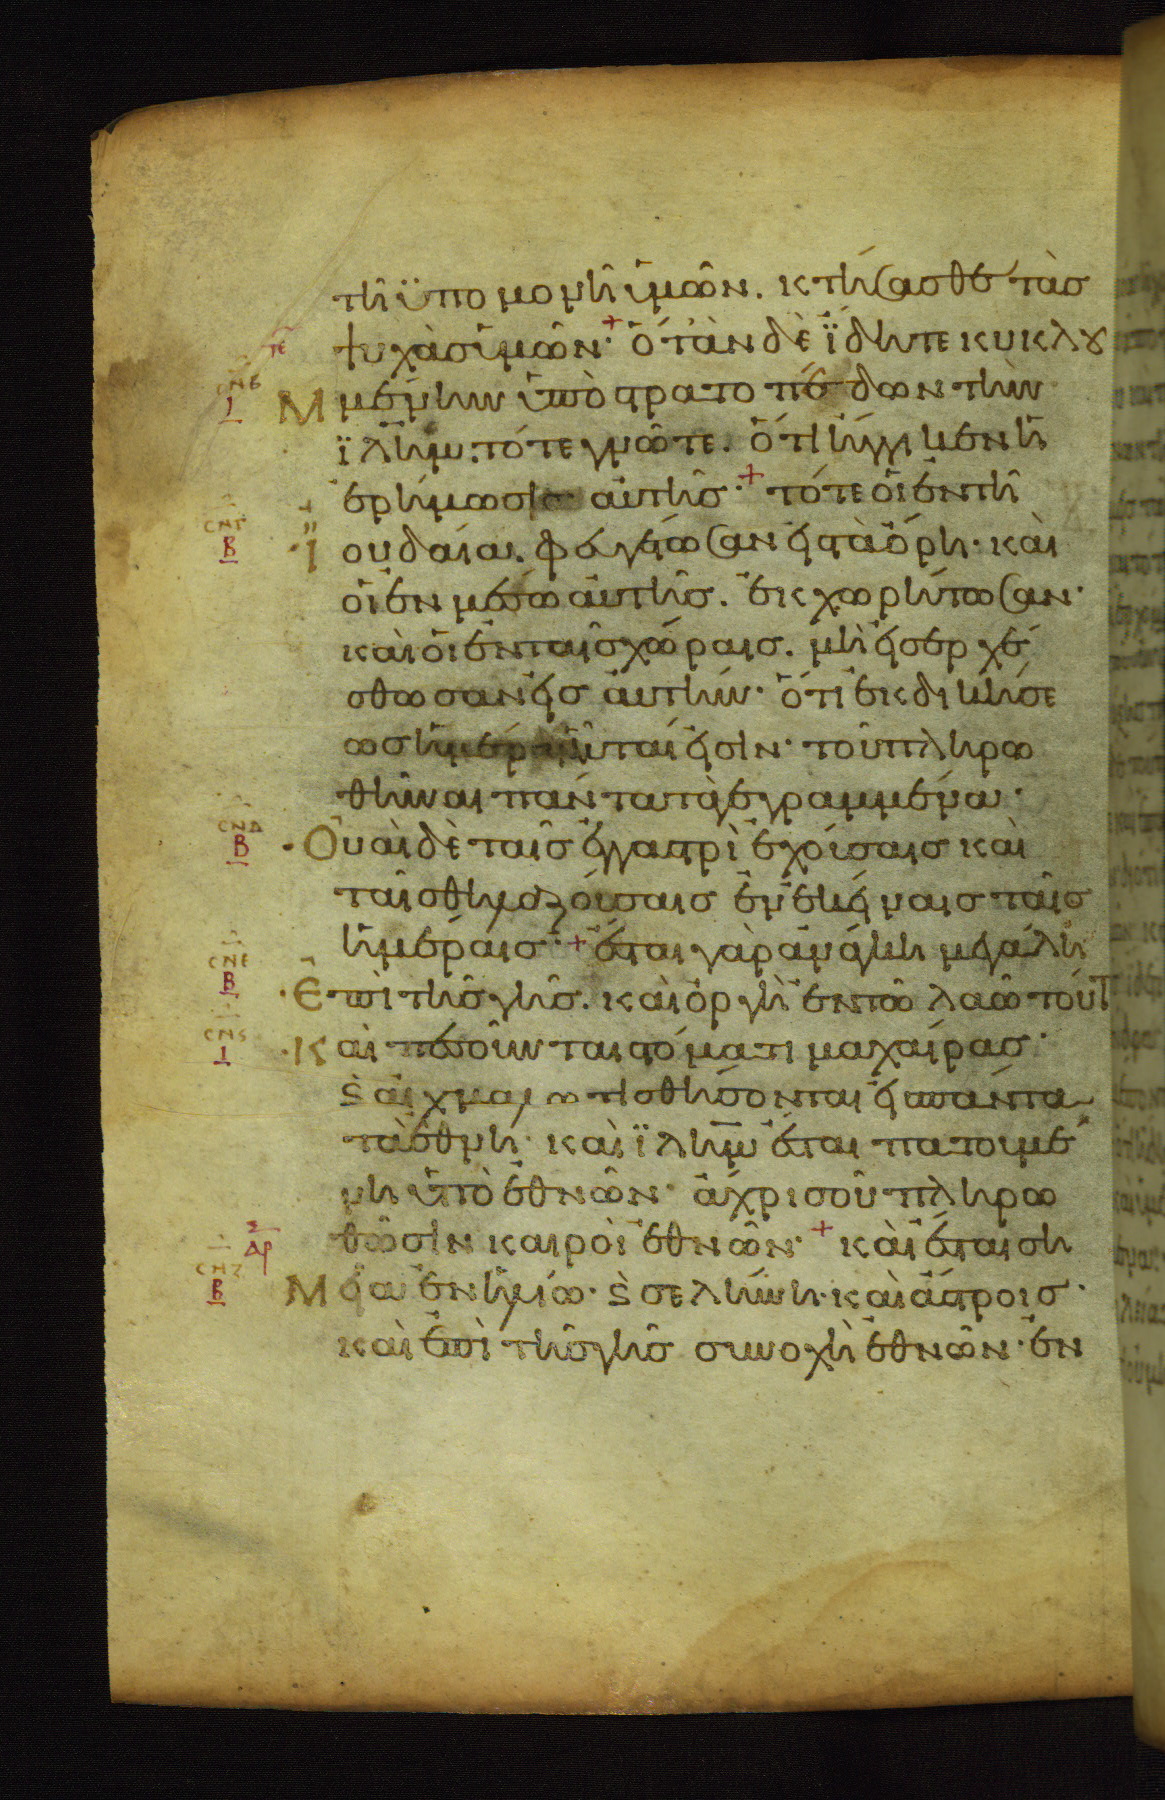 τῆ ϋπομονῆ ὑμῶν. κτήσασθε τὰσ
ψυχὰσ ὑμῶν· + ὅτὰν δὲ ἴδητε κυκλȣ
Μμένην ὑπὸ στρατοπέδων τὴν
ϊλ̅η̅μ̅. τότε γνῶτε. ὅτι ἤγγικεν ἡ
ἐρήμωσισ αὐτῆσ· + τότε οἱ ἐν τῆ
·Ϊουδαία. φευγέτωσαν εἰσ τὰ ὄρη· καὶ
οἱ ἐν μέσω αὐτῆσ. ἐκχωρήτωσαν·
καὶ οἱ ἐν ταῖσ χώραισ. μὴ εἰσερχέ
σθωσαν εἰσ ἀυτήν· ὅτι ἐκδικήσε
ωσ ἡμέραι αὗταί εἰσιν· τοῦ πληρω
θῆναι πάντα τὰ γεγραμμένα·
·Ουαὶ δὲ ταῖσ ἐν γαστρὶ ἐχούσαισ καὶ
ταῖσ θηλαζούσαισ ἐν ἐκείναισ ταῖσ
ἡμέραισ· + ἔσται γὰρ ἀνάγκη μεγάλη
·Ἐπὶ τῆσ γῆσ. καὶ ὀργὴ ἐν τῶ λαῶ τούτ
·Καὶ πεσοῦνται στόματι μαχαίρασ·
ϛ̀ αἰχμαλωτισθήσονται εἰσ πάντα
τὰ ἔθνη· καὶ ϊλ̅η̅μ̅ ἔσται πατουμέ
νη ὑπὸ ἐθνῶν· ἄχρισ οὗ πληρω
θῶσιν καιροὶ ἐθνῶν· + καὶ ἔσται ση
Μεῖα ἐν ἡλίω· ϛ̀ σελήνη· καὶ ἄστροισ·
καὶ ἐπὶ τῆσ γῆσ συνοχὴ ἐθνῶν· ἐν
CΝΓ
Β
CΝΔ
Β
CΝΕ
Β
CΝϚ
Ι
CΝΖ
Β